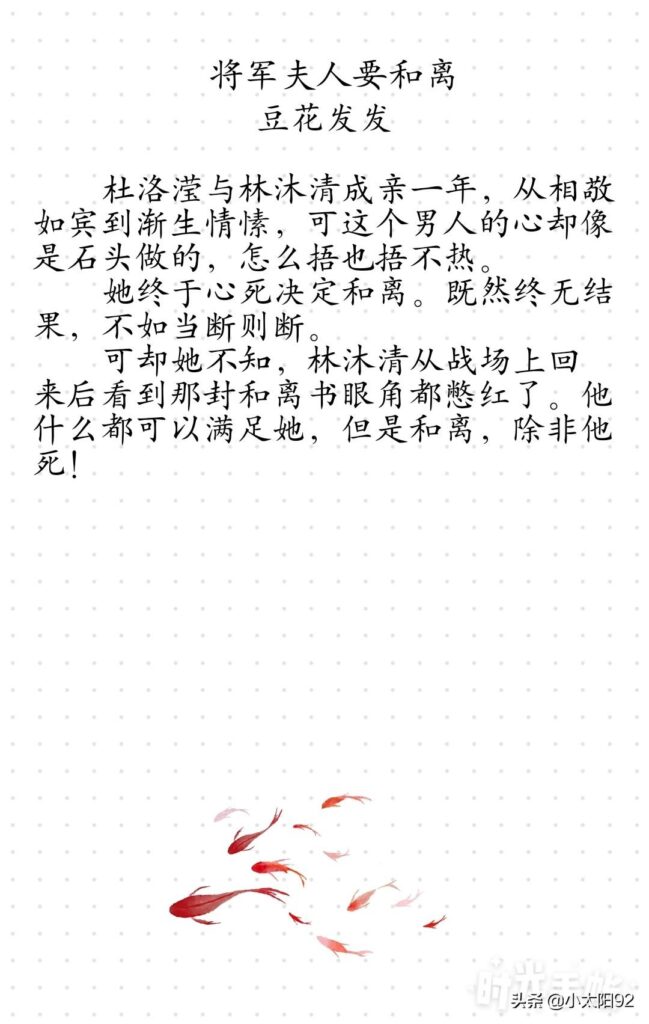 将军夫人要和离
豆花发发
杜洛滢与林沐清成亲一年，从相敬
如宾到渐生情愫，可这个男人的心却像
是石头做的，怎么捂也捂不热。
她终于心死决定和离。既然终无结
果，不如当断则断。
可却她不知，林沐清从战场上回
来后看到那封和离书眼角都憋红了。他
什么都可以满足她，但是和离，除非他
死！
时光手帐
头条 @小太阳92